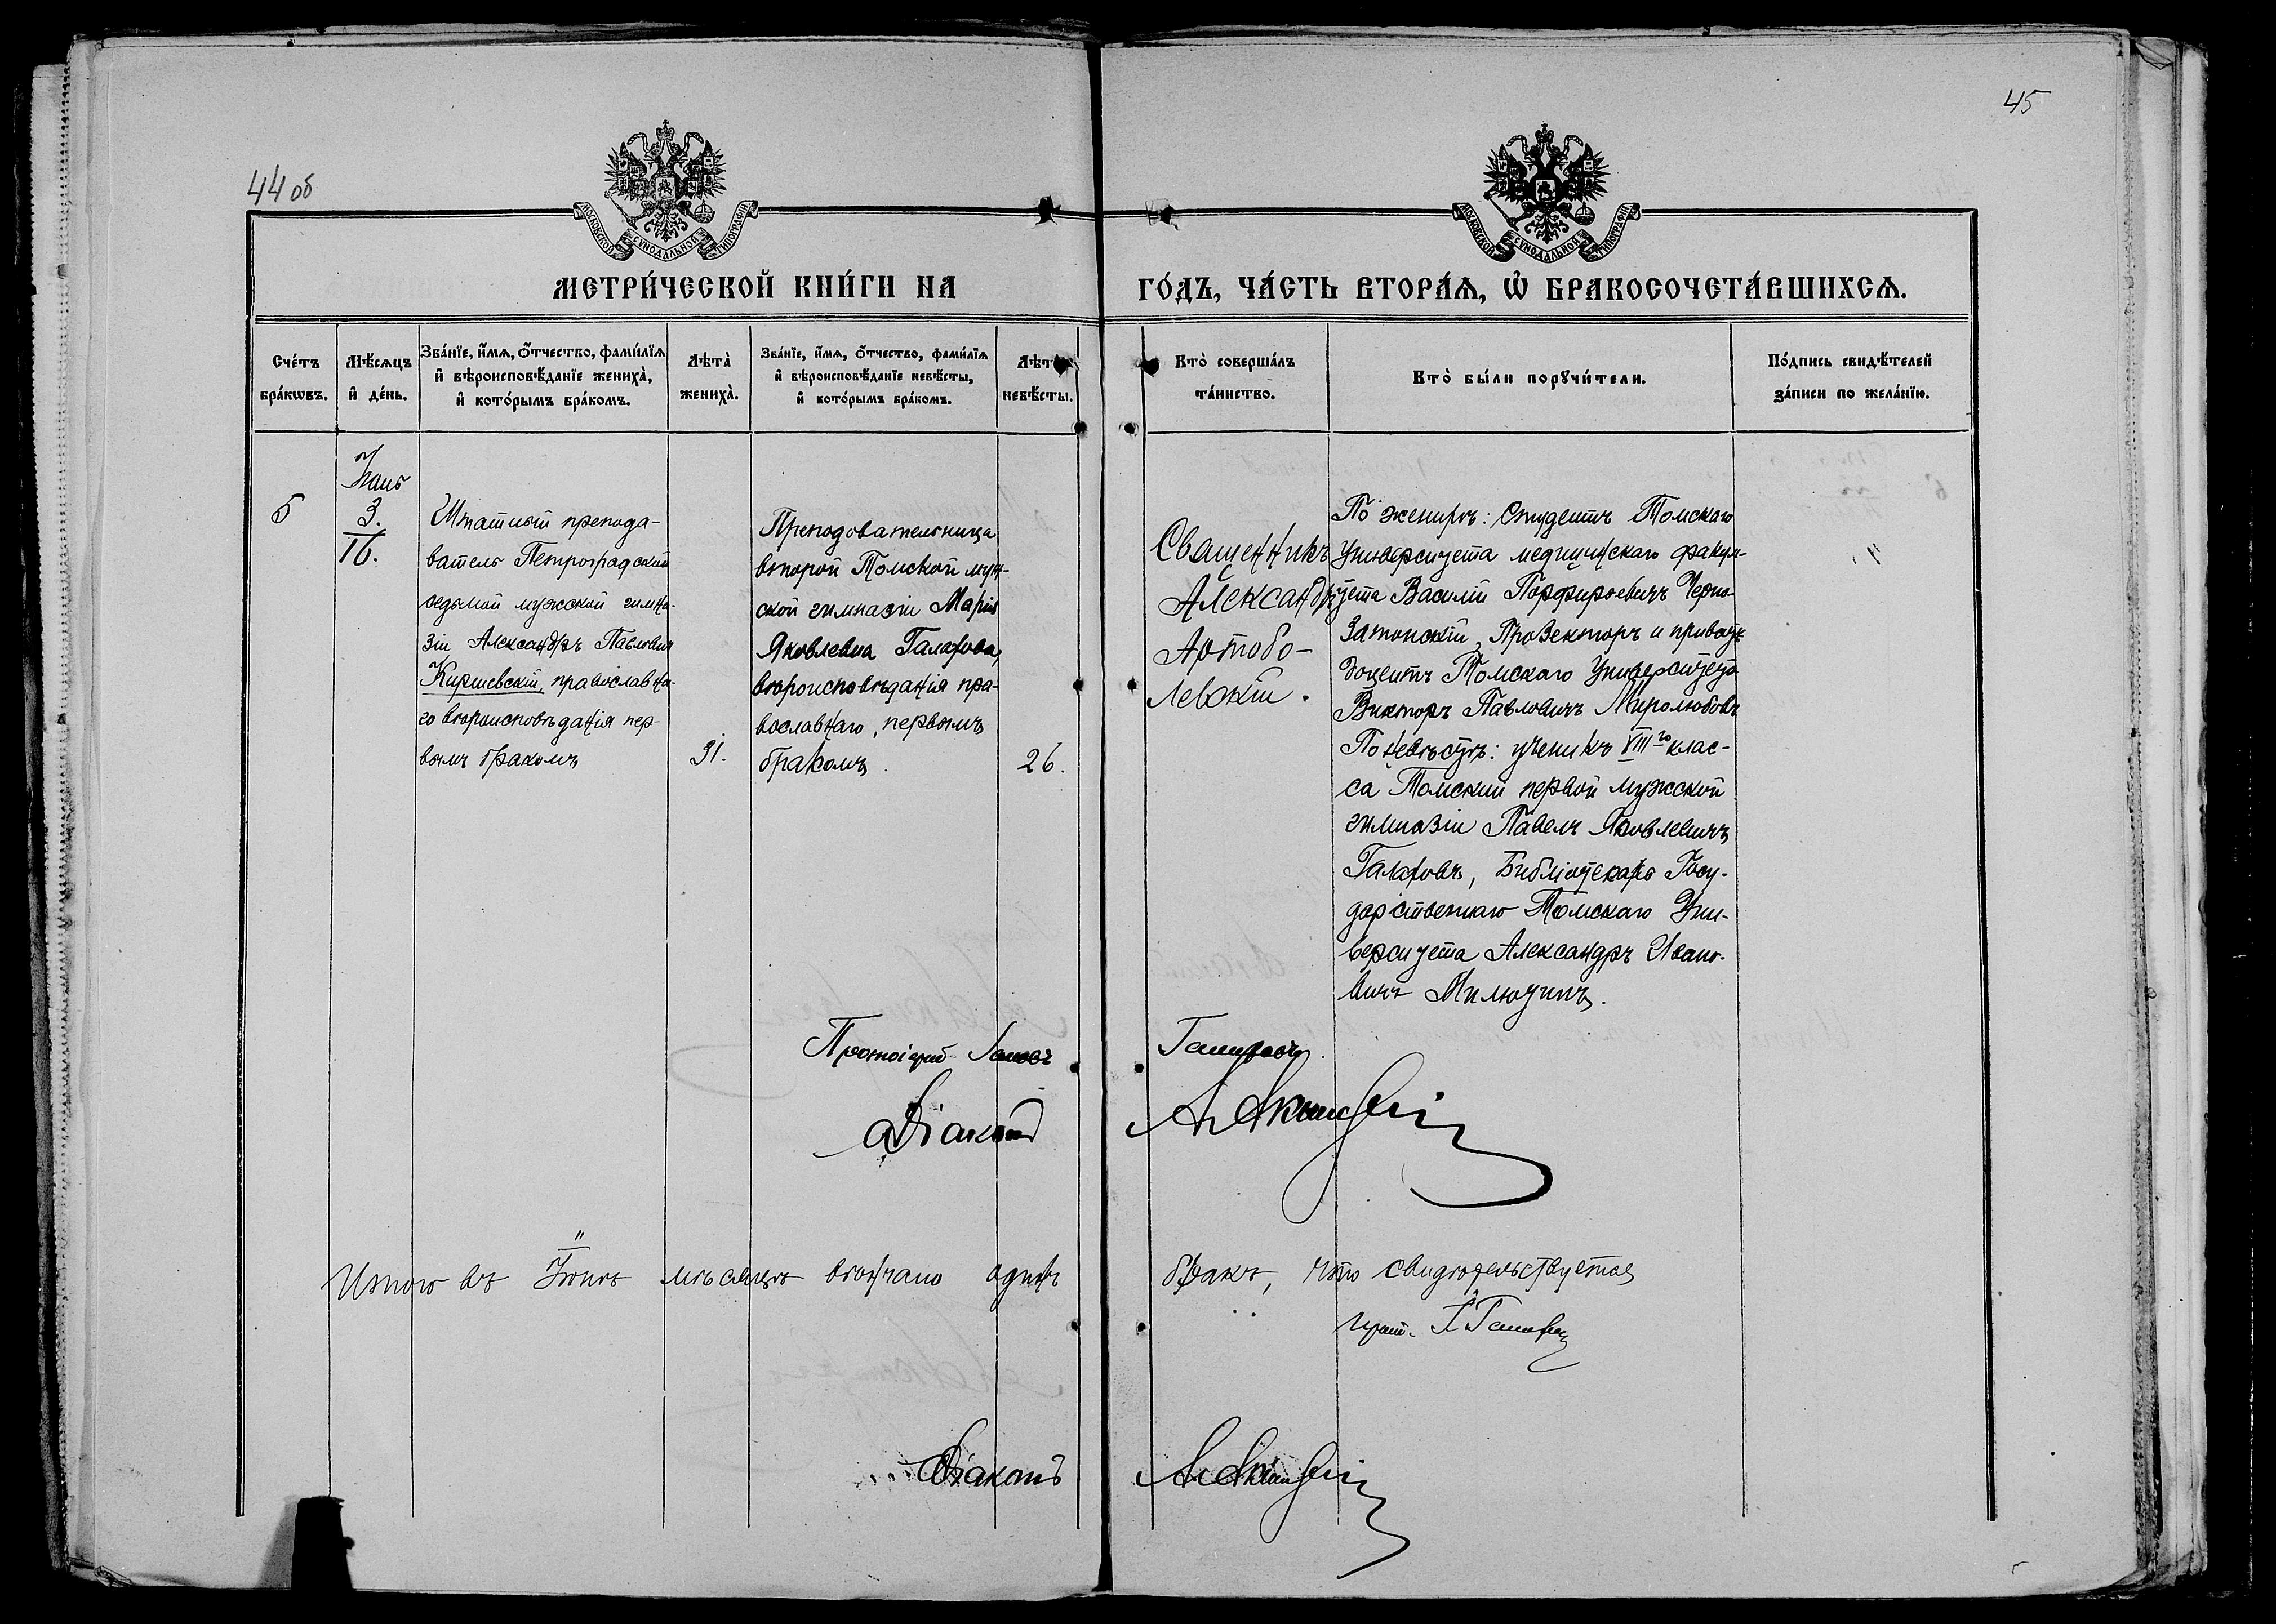 45
44 об
МОСКОВСКОЙ СѴНОДАЛЬНОЙ ТИПОГРАФІИ
МОСКОВСКОЙ СѴНОДАЛЬНОЙ ТИПОГРАФІИ
МЕТРИ́ЧЕСКОЙ КНИ́ГИ НА
ГО́ДЪ, ЧА́СТЬ ВТОРА́Ѧ, Ѡ҆ БРАКОСОЧЕТА́ВШИХСѦ.
Сче́тъ
бра́кѡвъ.
Мѣ́сѧцъ
и҆ де́нь.
Зва́нїе, и҆́мѧ, ѻ҆́тчество, фами́лїѧ
и҆ вѣроисповѣ́данїе жениха̀,
и҆ кото́рымъ бра́комъ.
Лѣта̀
жениха̀.
Зва́нїе, и҆́мѧ, ѻ҆́тчество, фами́лїѧ
и҆ вѣроисповѣ́данїе невѣ́сты,
и҆ кото́рымъ бра́комъ.
Лѣт
невѣ́сты.
Кто̀ соверша́лъ
та́инство.
Кто̀ бы́ли порꙋчи́тели.
По́дпись свидѣ́телей
за́писи по жела́нїю.
5
3.
16.
Штатный препода-
ватель Петроградской
седьмой мужской гимна-
зіи Александръ Павловичъ
Киршевскій, православна-
го вѣроисповѣданія пер-
вымъ бракомъ
31.
Преподовательница
второй Томской муж-
ской гимназіи Марія
Яковлевна Галахова,
вѣроисповѣданія пра-
вославнаго, первымъ
бракомъ.
26.
Священникъ
Александръ
Артобо-
левскій.
По женихѣ: Студентъ Томскаго
Университета медицинскаго факуль-
тета Василій Порфирьевичъ Черно-
Затонскій, Прозекторъ и приватъ
доцентъ Томскаго Университета
Викторъ Павловичъ Миролюбовъ
По невѣстѣ: ученикъ VIII го клас-
са Томской первой мужской
гимназіи Павелъ Яковлевичъ
Галаховъ, Библіотекарь Госу-
дарственнаго Томскаго Уни-
верситета Александръ Ивано-
вичъ Милютинъ.
Протоіерей
Діаконъ
Итого въ Іюнѣ мѣсяцѣ вѣнчано одинъ
бракъ, что свидѣтельствуется
Діаконъ